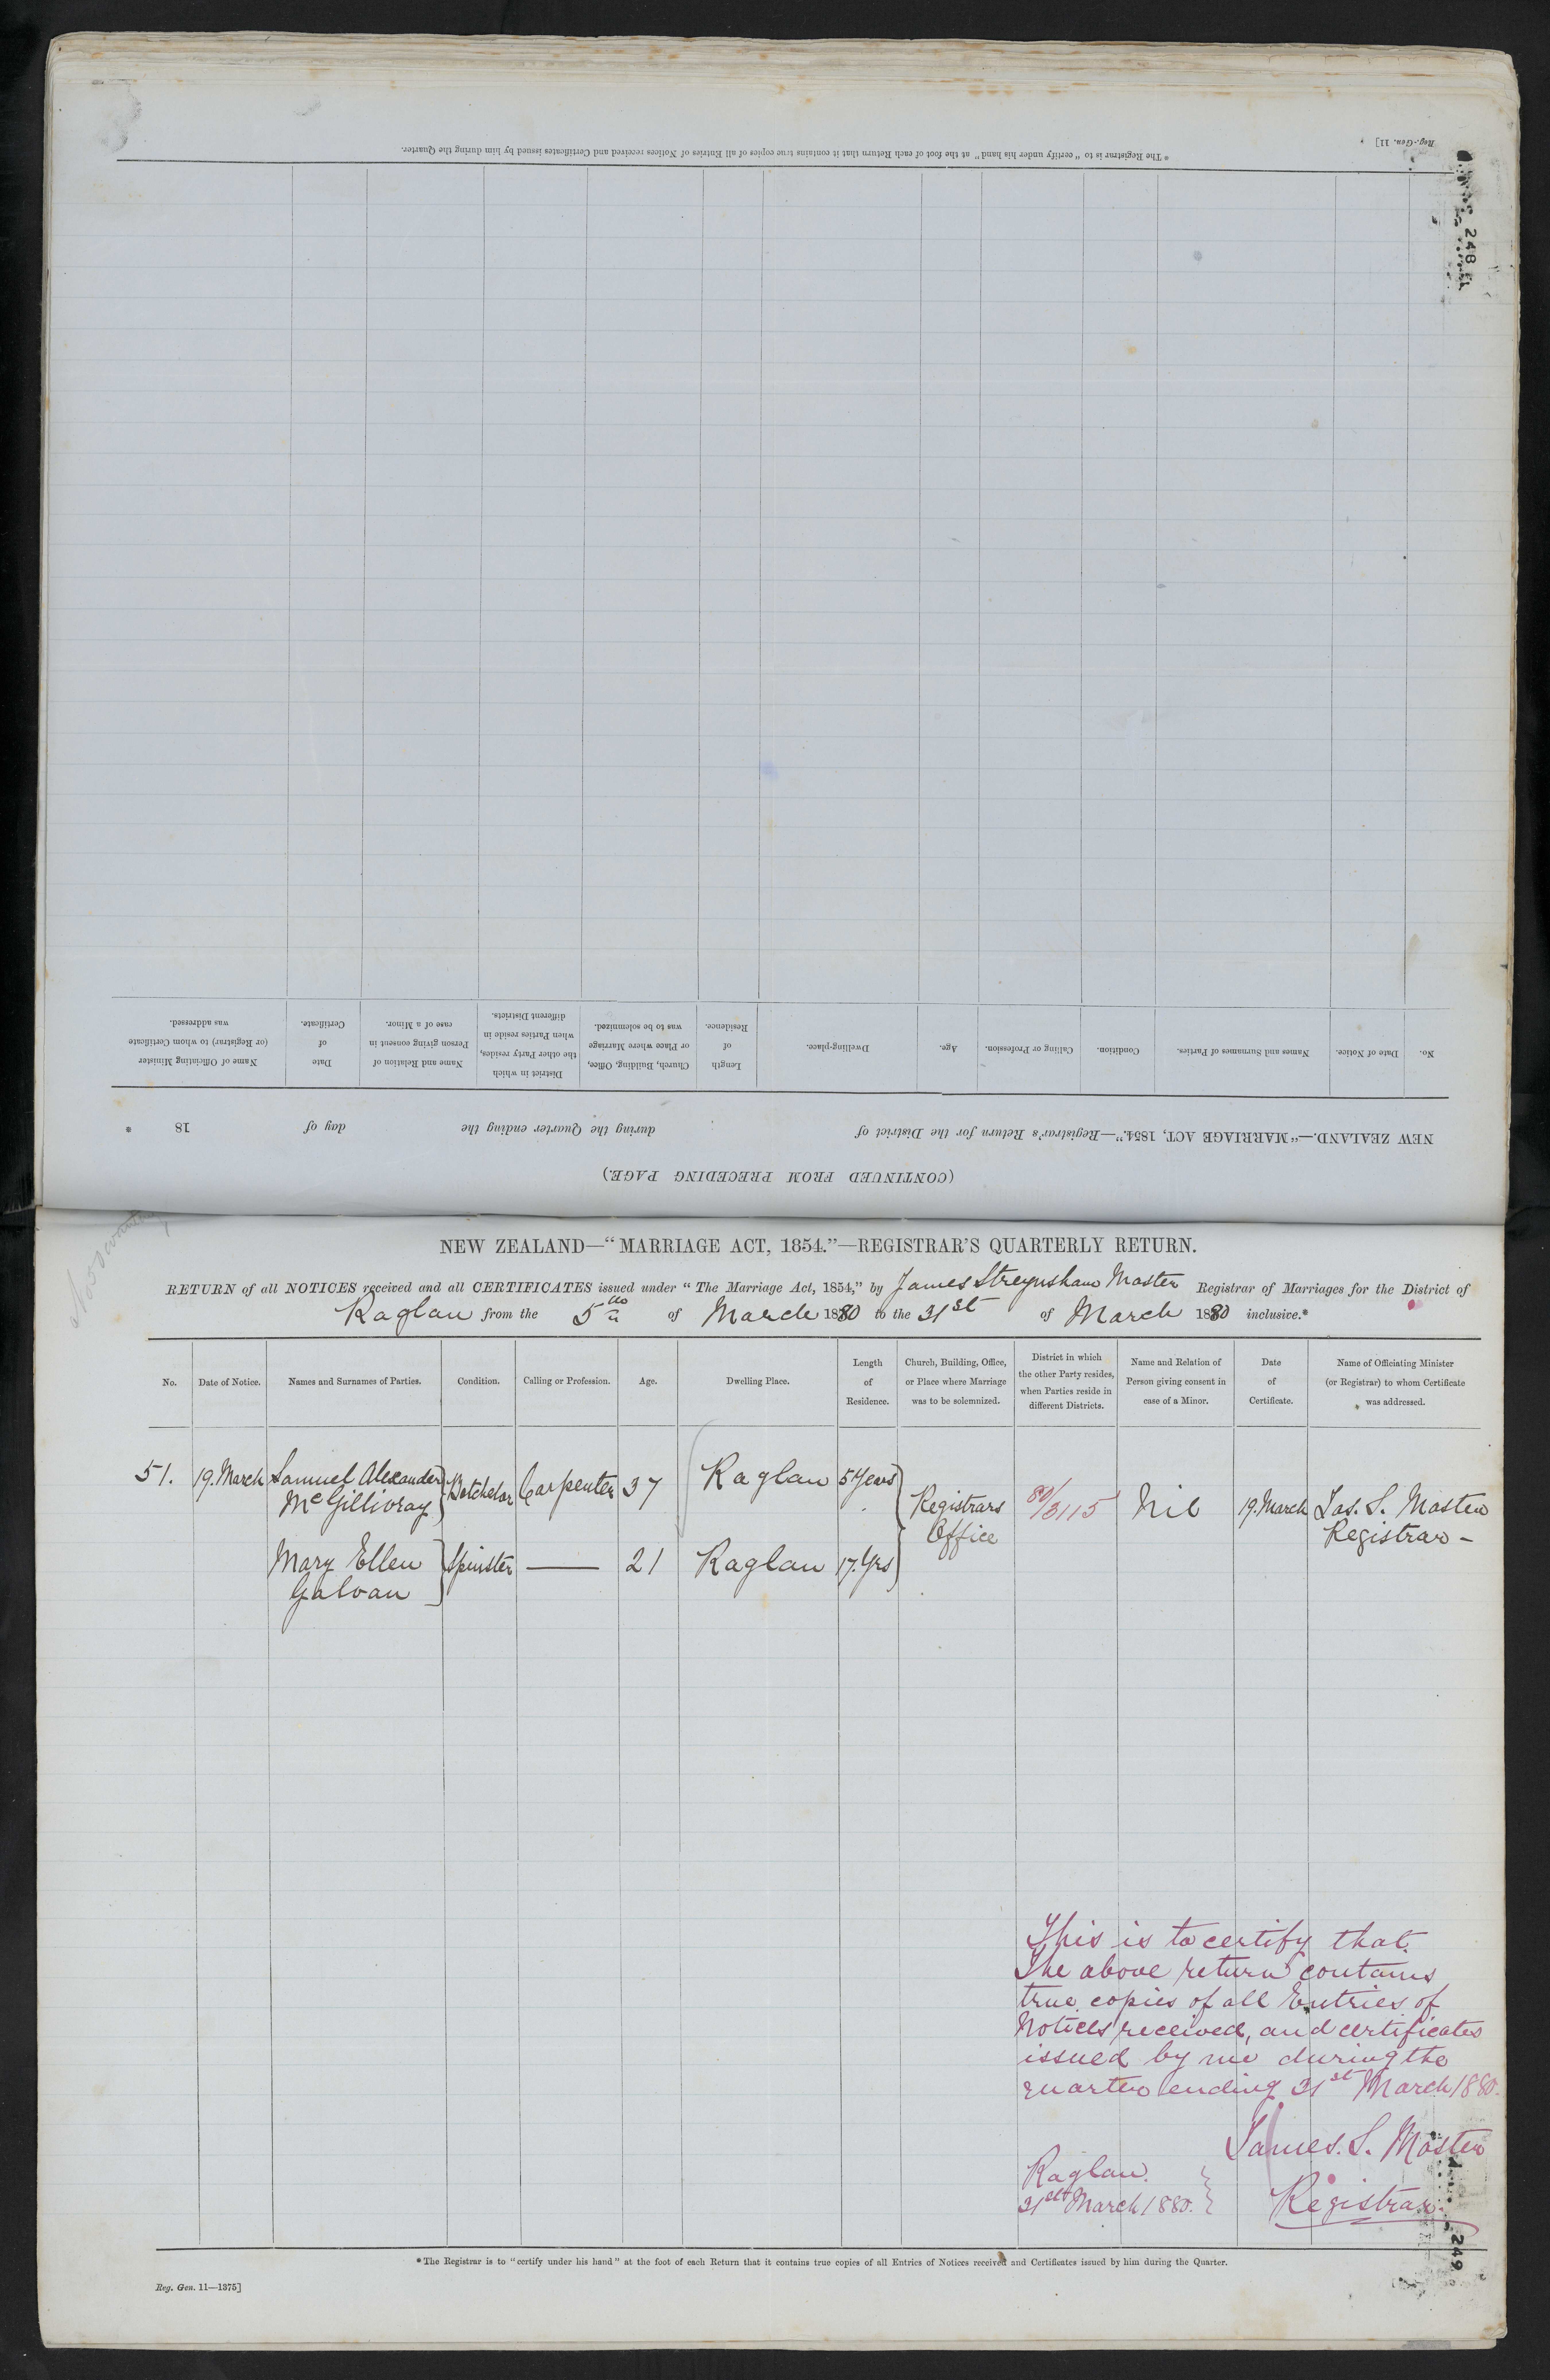 Reg.-Gen. 11]
* The Registrar is to "certify under his hand" at the foot of each Return that it contains true copies of all Entries of Notices received and Certificates issued by him during the Quarter.
248
(CONTINUED FROM PRECEDING PAGE.)
NEW ZEALAND.—"MARRIAGE ACT, 1854."—Registrar's Return for the District of during the Quarter ending the day of 18 .
No.
Date of Notice.
Names and Surnames of Parties.
Condition.
Calling or Profession.
Age.
Dwelling-place.
Length
of
Residence.
Church, Building, Office,
or Place where Marriage
was to be solemnized.
District in which
the other Party resides,
when Parties reside in
different Districts.
Name and Relation of
Person giving consent in
case of a Minor.
Date
of
Certificate.
Name of Officiating Minister
(or Registrar) to whom Certificate
was addressed.
NEW ZEALAND—"MARRIAGE ACT, 1854."—REGISTRAR'S QUARTERLY RETURN.
RETURN of all NOTICES received and all CERTIFICATES issued under "The Marriage Act, 1854," by James Streynsham Master Registrar of Marriages for the District of
Raglan from the 5th of March 1880 to the 31st of March 1880 inclusive.*
No.
Date of Notice.
Names and Surnames of Parties.
Condition.
Calling or Profession.
Age.
Dwelling Place.
Length
of
Residence.
Church, Building, Office,
or Place where Marriage
was to be solemnized.
District in which
the other Party resides,
when Parties reside in
different Districts.
Name and Relation of
Person giving consent in
case of a Minor.
Date
of
Certificate.
Name of Officiating Minister
(or Registrar) to whom Certificate
was addressed.
51. 19. March Samuel Alexander Batchelor Carpenter 37 Raglan 5 Years
McGillivray
Registrars 80/3115 Nil 19. March Jas. S. Master
Office Registrar -
Mary Ellen Spinster — 21 Raglan 17. Yrs
Galvan
This is to certify that
The above return contains
true copies of all Entries of
Notices received, and certificates
issued by me during the
quarter ending 31st March 1880.
James. S. Master
Raglan.
31st March 1880. Registrar.
249
* The Registrar is to "certify under his hand" at the foot of each Return that it contains true copies of all Entries of Notices received and Certificates issued by him during the Quarter.
Reg. Gen. 11—1375]